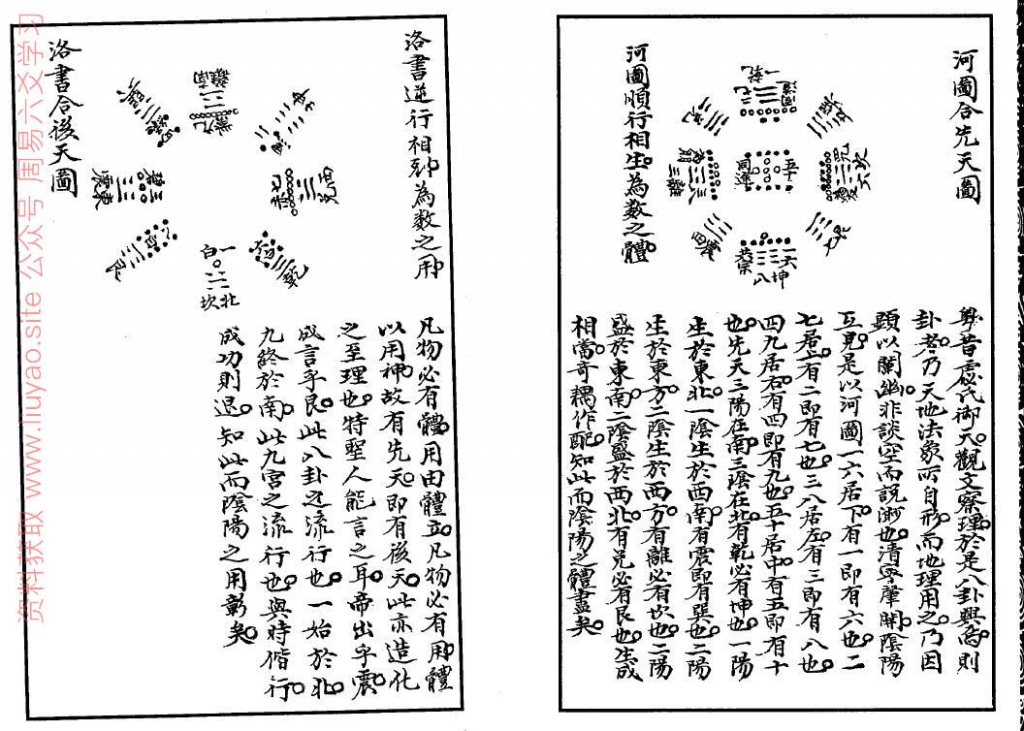 河圖合先天圖
河圖順行相生為數之體
粵昔宓氏御天觀文察理於是八卦興焉則
卦者乃天地法象所自形而地理用之乃因
顯以闡幽非談空而說渺也清寧肇開陰陽
互見是以河圖一六居下有一即有六也二
七居上有二即有七也三八居左有三即有八也
四九居右有四即有九也五十居中有五即有十
也先天三陽在南三陰在北有乾必有坤也一陽
生於東北一陰生於西南有震即有巽也二陽
生於東方二陰生於西方有離必有坎也二陽
盛於東南二陰盛於西北有兌必有艮也生成
相當奇耦作配知此而陰陽之體盡矣
洛書逆行相剋為數之用
洛書合後天圖
乾
一
白
北
坎
凡物必有體用由體立凡物必有用體
以用神故有先天即有後天此亦造化
之至理也特聖人能言之耳帝出乎震
成言乎艮此八卦之流行也一始於北
九終於南此九宮之流行也與時偕行
成功則退知此而陰陽之用彰矣
资料获取 www.liuyao.site 公众号 周易六爻学习